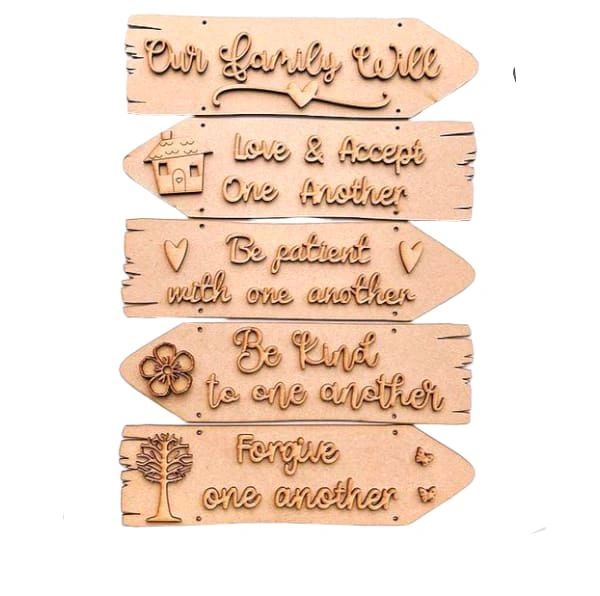 Our Family Will
Love & Accept
One Another
Be patient
with one another
Be Kind
to one another
Forgive
one another